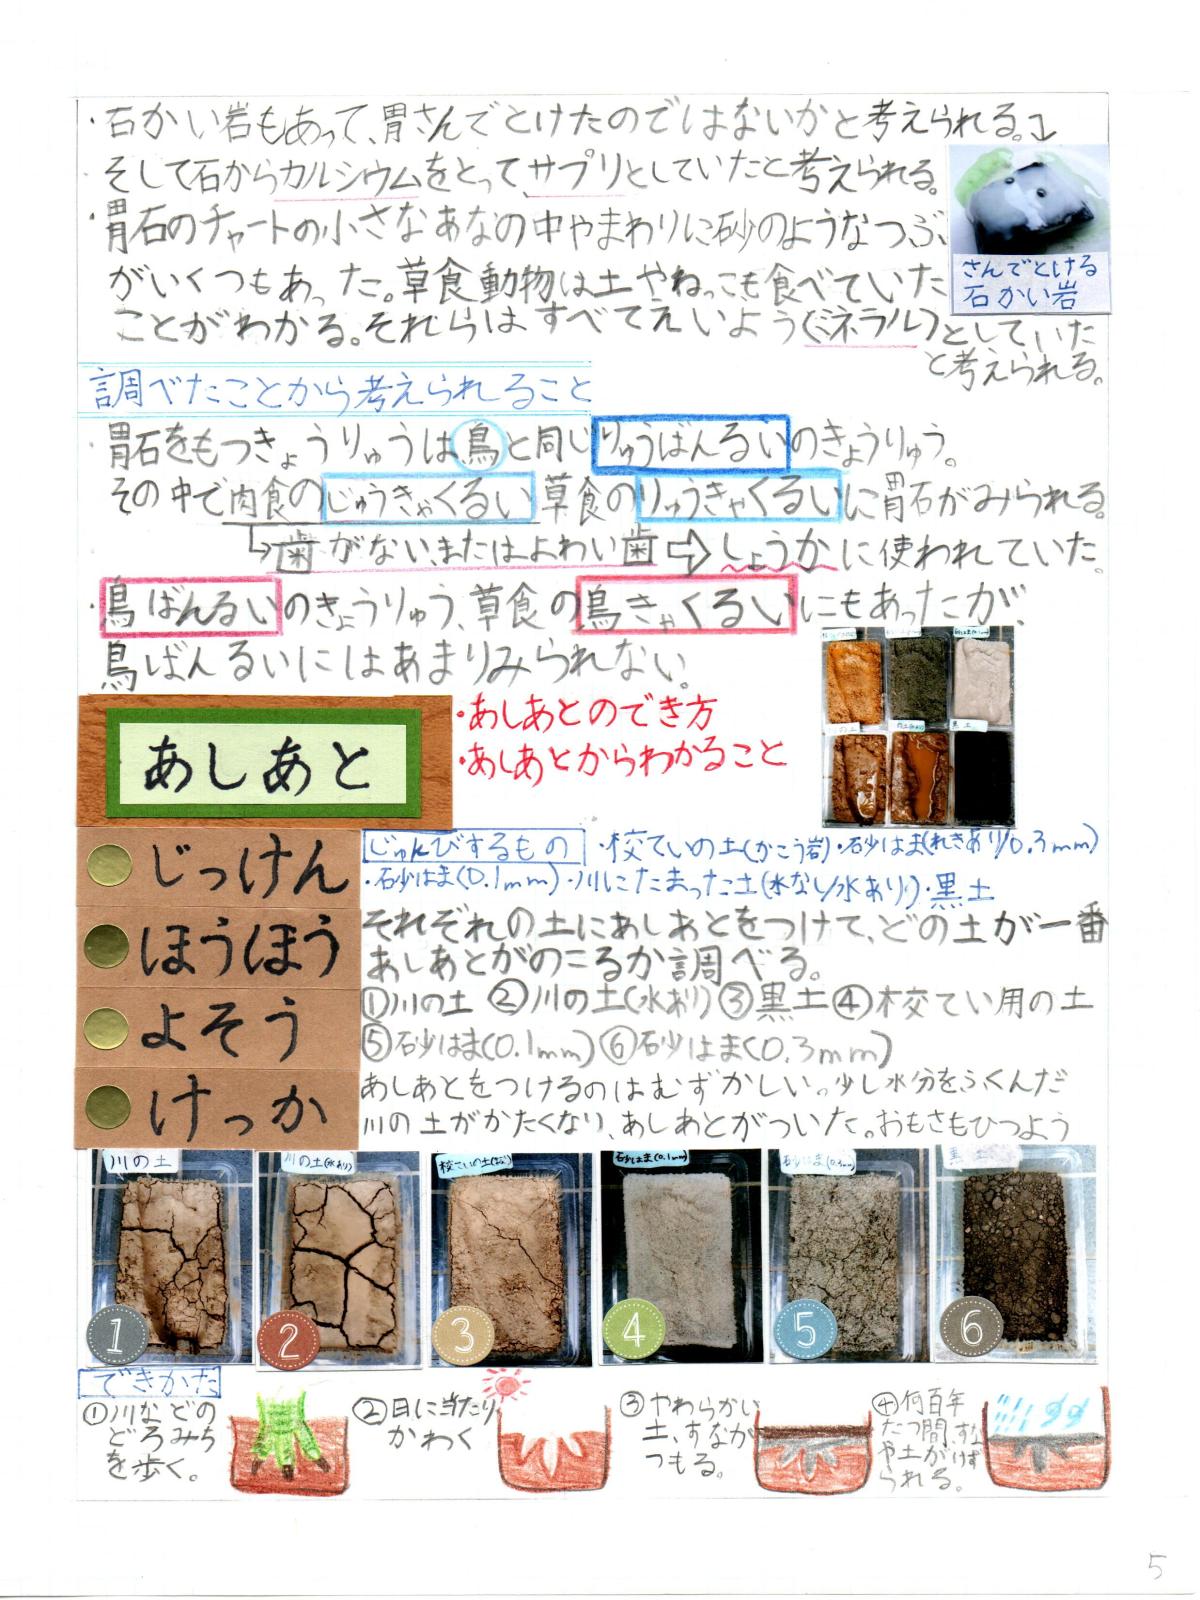 ・石かい岩もあって、胃さんでとけたのではないかと考えられる。
そして石からカルシウムをとって、サプリとしていたと考えられる。
・胃石のチャートの小さなあなの中やまわりに砂のようなつぶ
がいくつもあった。草食動物は土やねっこも食べていた
ことがわかる。それらはすべてえいよう(ミネラル)としていた
と考えられる。
さんでとける
石かい岩
調べたことから考えられること
・胃石をもつきょうりゅうは、鳥と同じりゅうばんるいのきょうりゅう。
その中で肉食のじゅうきゃくるい草食のりゅうきゃくるいに胃石がみられる。
歯がない、またはよわい歯⇨しょうかに使われていた。
・鳥ばんるいのきょうりゅう、草食の鳥きゃくるいにもあったが、
鳥ばんるいにはあまりみられない。
あしあと
・あしあとのでき方
・あしあとからわかること
黒土
じっけん
じゅんびするもの ・校ていの土(かこう岩)・砂はま(れきあり/0.3mm)
・砂はま(0.1mm)・川にたまった土(水なし/水あり)・黒土
ほうほう
それぞれの土にあしあとをつけて、どの土が一番
あしあとがのこるか調べる。
よそう
①川の土 ②川の土(水あり) ③黒土 ④校てい用の土
⑤砂はま(0.1mm) ⑥砂はま(0.3mm)
けっか
あしあとをつけるのはむずかしい。少し水分をふくんだ
川の土がかたくなり、あしあとがついた。おもさもひつよう
川の土
川の土(水あり)
校ていの土
砂はま(0.1mm)
砂はま(0.3mm)
黒土
1
2
3
4
5
6
できかた
①川などの
どろみち
を歩く。
②日に当たり
かわく
③やわらかい
土、すなが
つもる。
④何百年
たつ間、すな
や土がけず
られる。
5